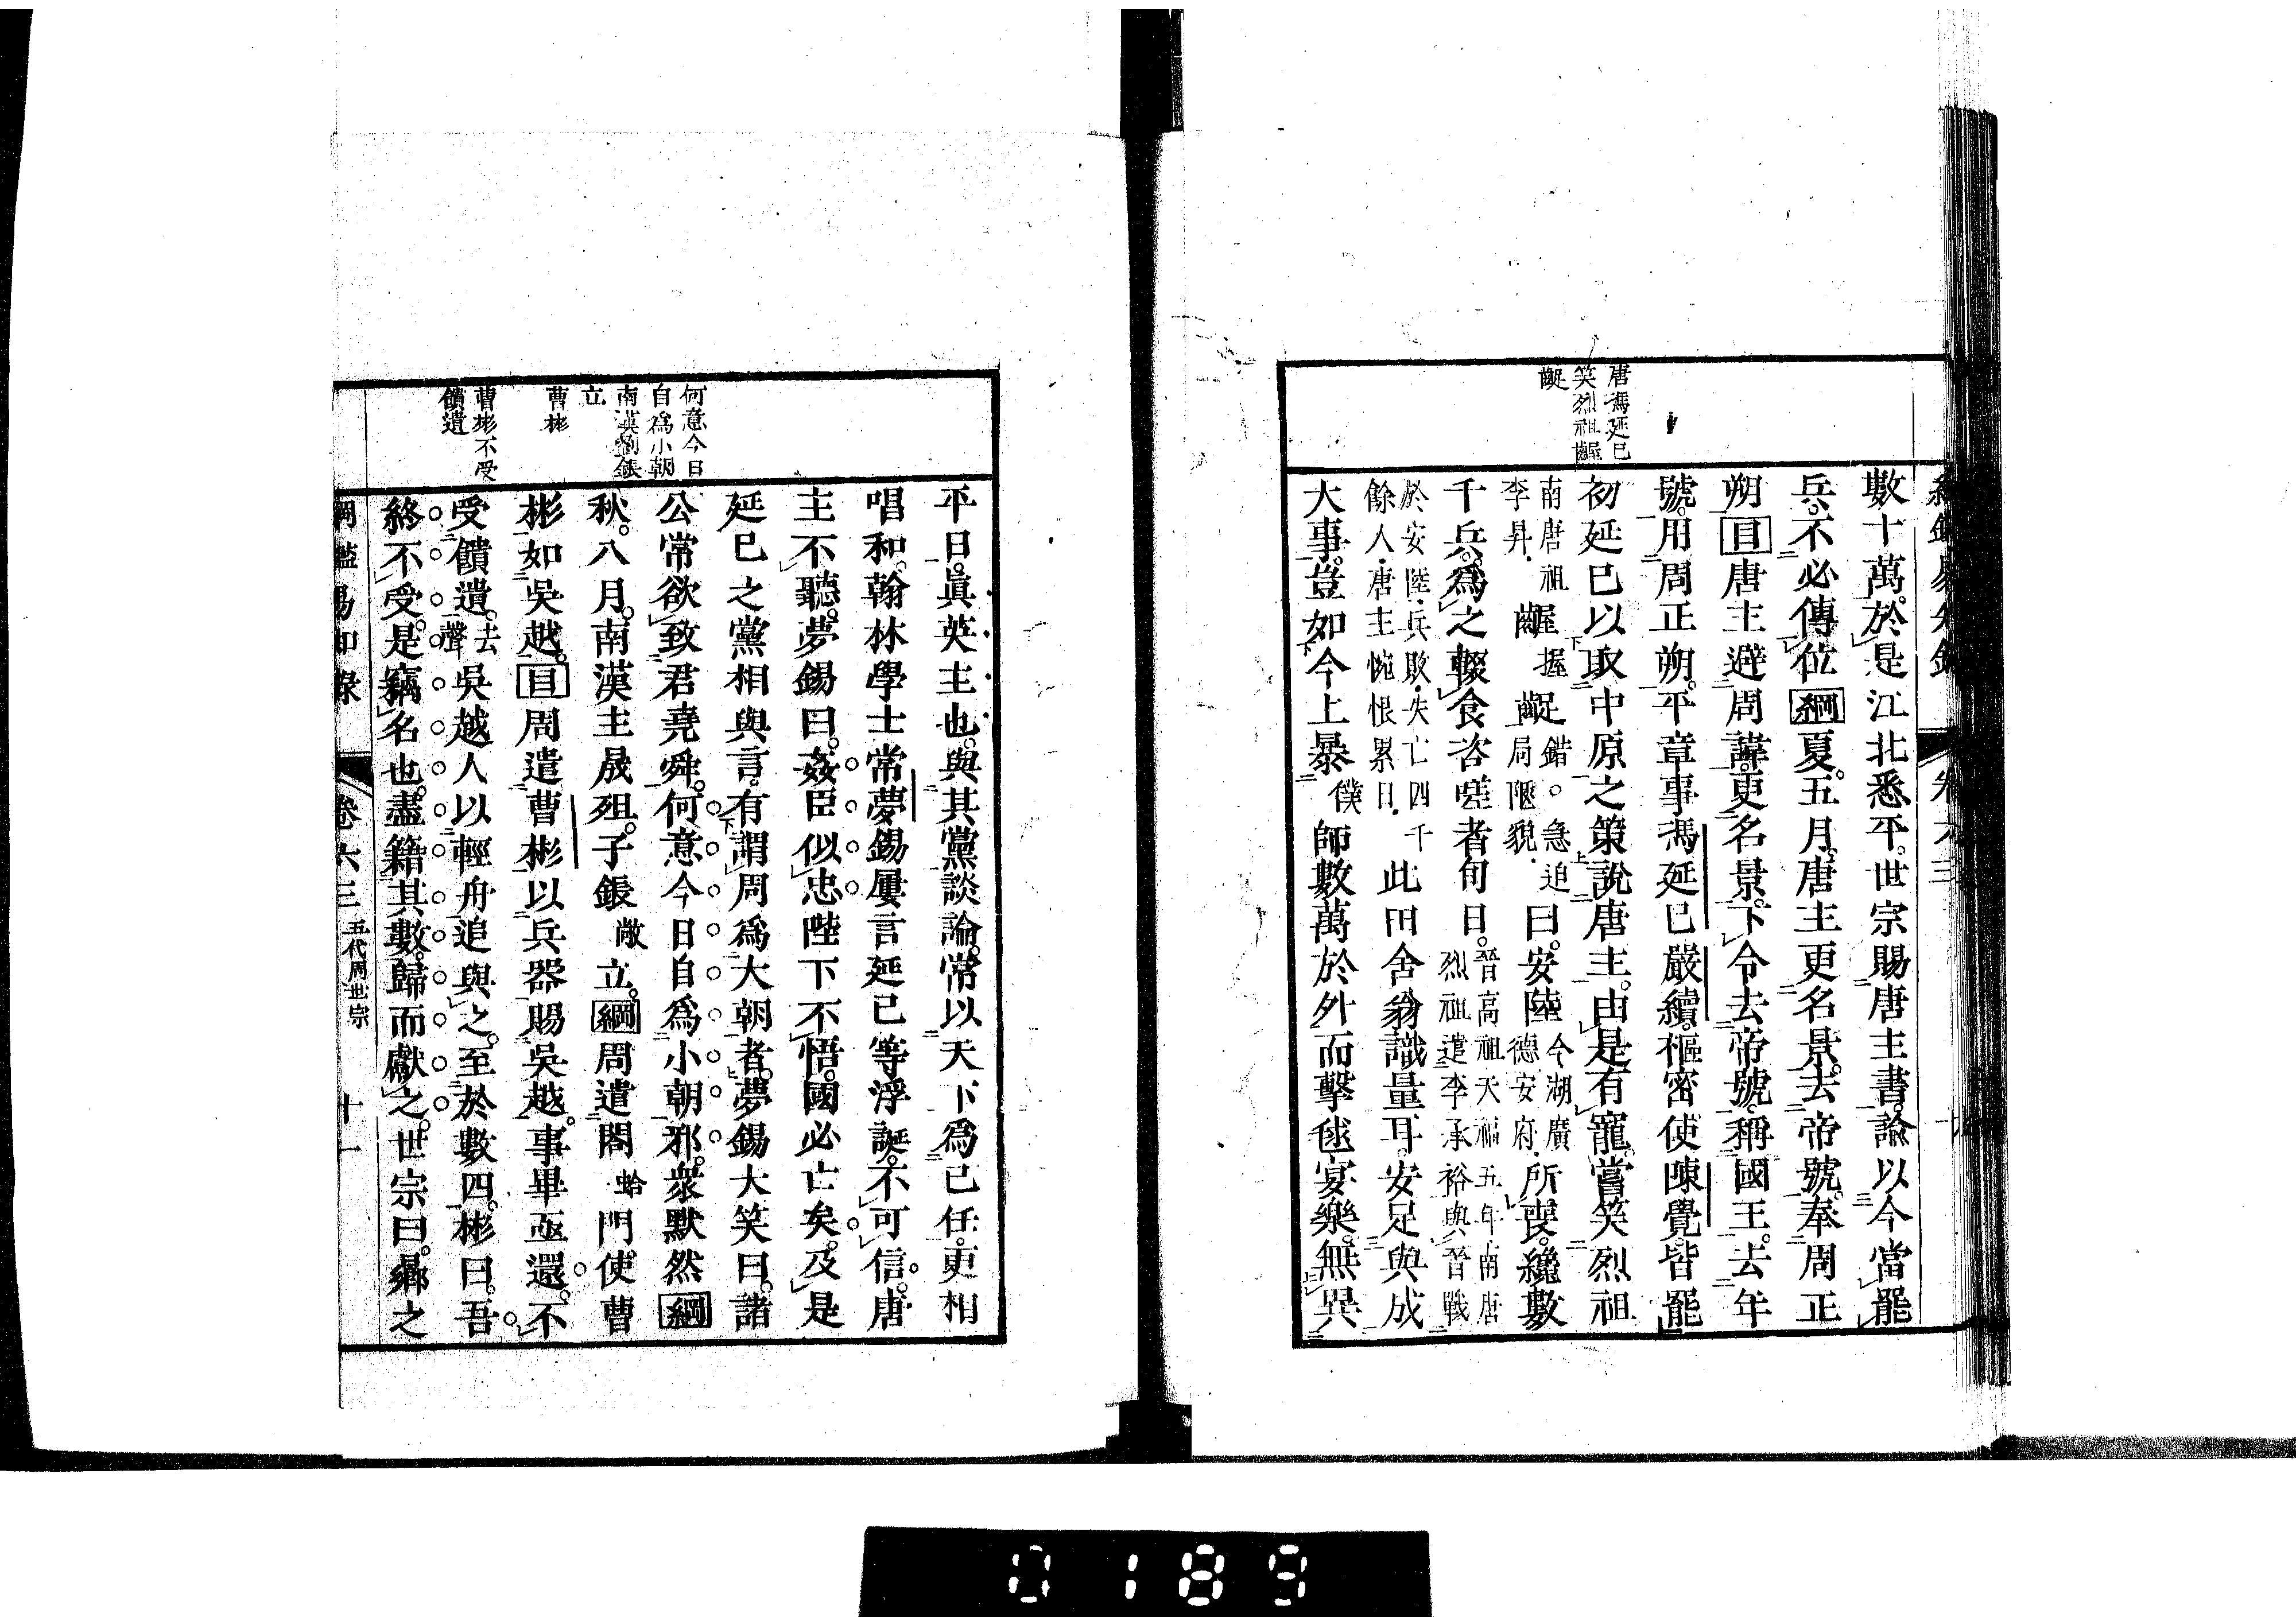 唐馮延巳
笑烈祖齷
齪
數十萬。於是江北悉平。世宗賜唐主書。諭以今當罷
兵。不必傳位綱夏。五月。唐主更名景。去帝號。奉周正
朔目唐主避周諱。更名景。下令去帝號。稱國王。去年
號。用周正朔。平章事馮延巳嚴續。樞密使陳覺。皆罷
初延巳以取中原之策說唐主。由是有寵。嘗笑烈祖
南唐祖李昪.齷握齪錯。急追局陿貌.曰。安陸今湖廣德安府.所喪。纔數
千兵。爲之輟食咨嗟者旬日。晉高祖天福五年.南唐烈祖遣李承裕與晉戰
於安陸.兵敗.失亡四千餘人.唐主惋恨累日.此田舍翁識量耳。安足與成
大事。豈如今上暴僕師數萬於外而擊毬宴樂。無異
卷六三
何意今日
自爲小朝
南漢劉鋹
立
曹彬
曹彬不受
饋遺
平日。眞英主也。與其黨談論。常以天下爲己任。更相
唱和。翰林學士常夢錫屢言延巳等浮誕。不可信。唐
主不聽。夢錫曰。姦臣似忠陛下不悟。國必亡矣。及是
延巳之黨相與言。有謂周爲大朝者。夢錫大笑曰。諸
公常欲致君堯舜。何意今日自爲小朝邪。衆默然綱
秋。八月。南漢主晟殂。子鋹敞立。綱周遣閤蛤門使曹
彬如吳越。目周遣曹彬以兵器賜吳越。事畢亟還。不
受饋遺。去聲吳越人以輕舟追與之。至於數四。彬曰。吾
終不受。是竊名也。盡籍其數。歸而獻之。世宗曰。曏之
綱鑑易知錄 卷六三 五代周世宗 十一